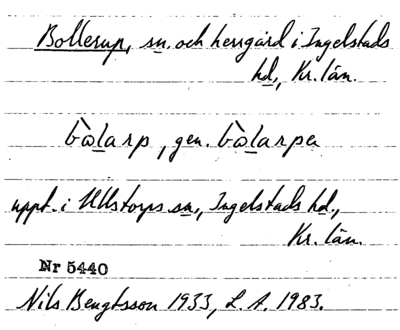 Bollerup, sn. och herrgård i Ingelstads
hd., Kr. län.
bòlarp, gen. bòlarpa
uppt. i Ullstorps sn., Ingelstads hd.,
Kr. län.
Nr 5440
Nils Bengtsson 1933, L. A. 1983.